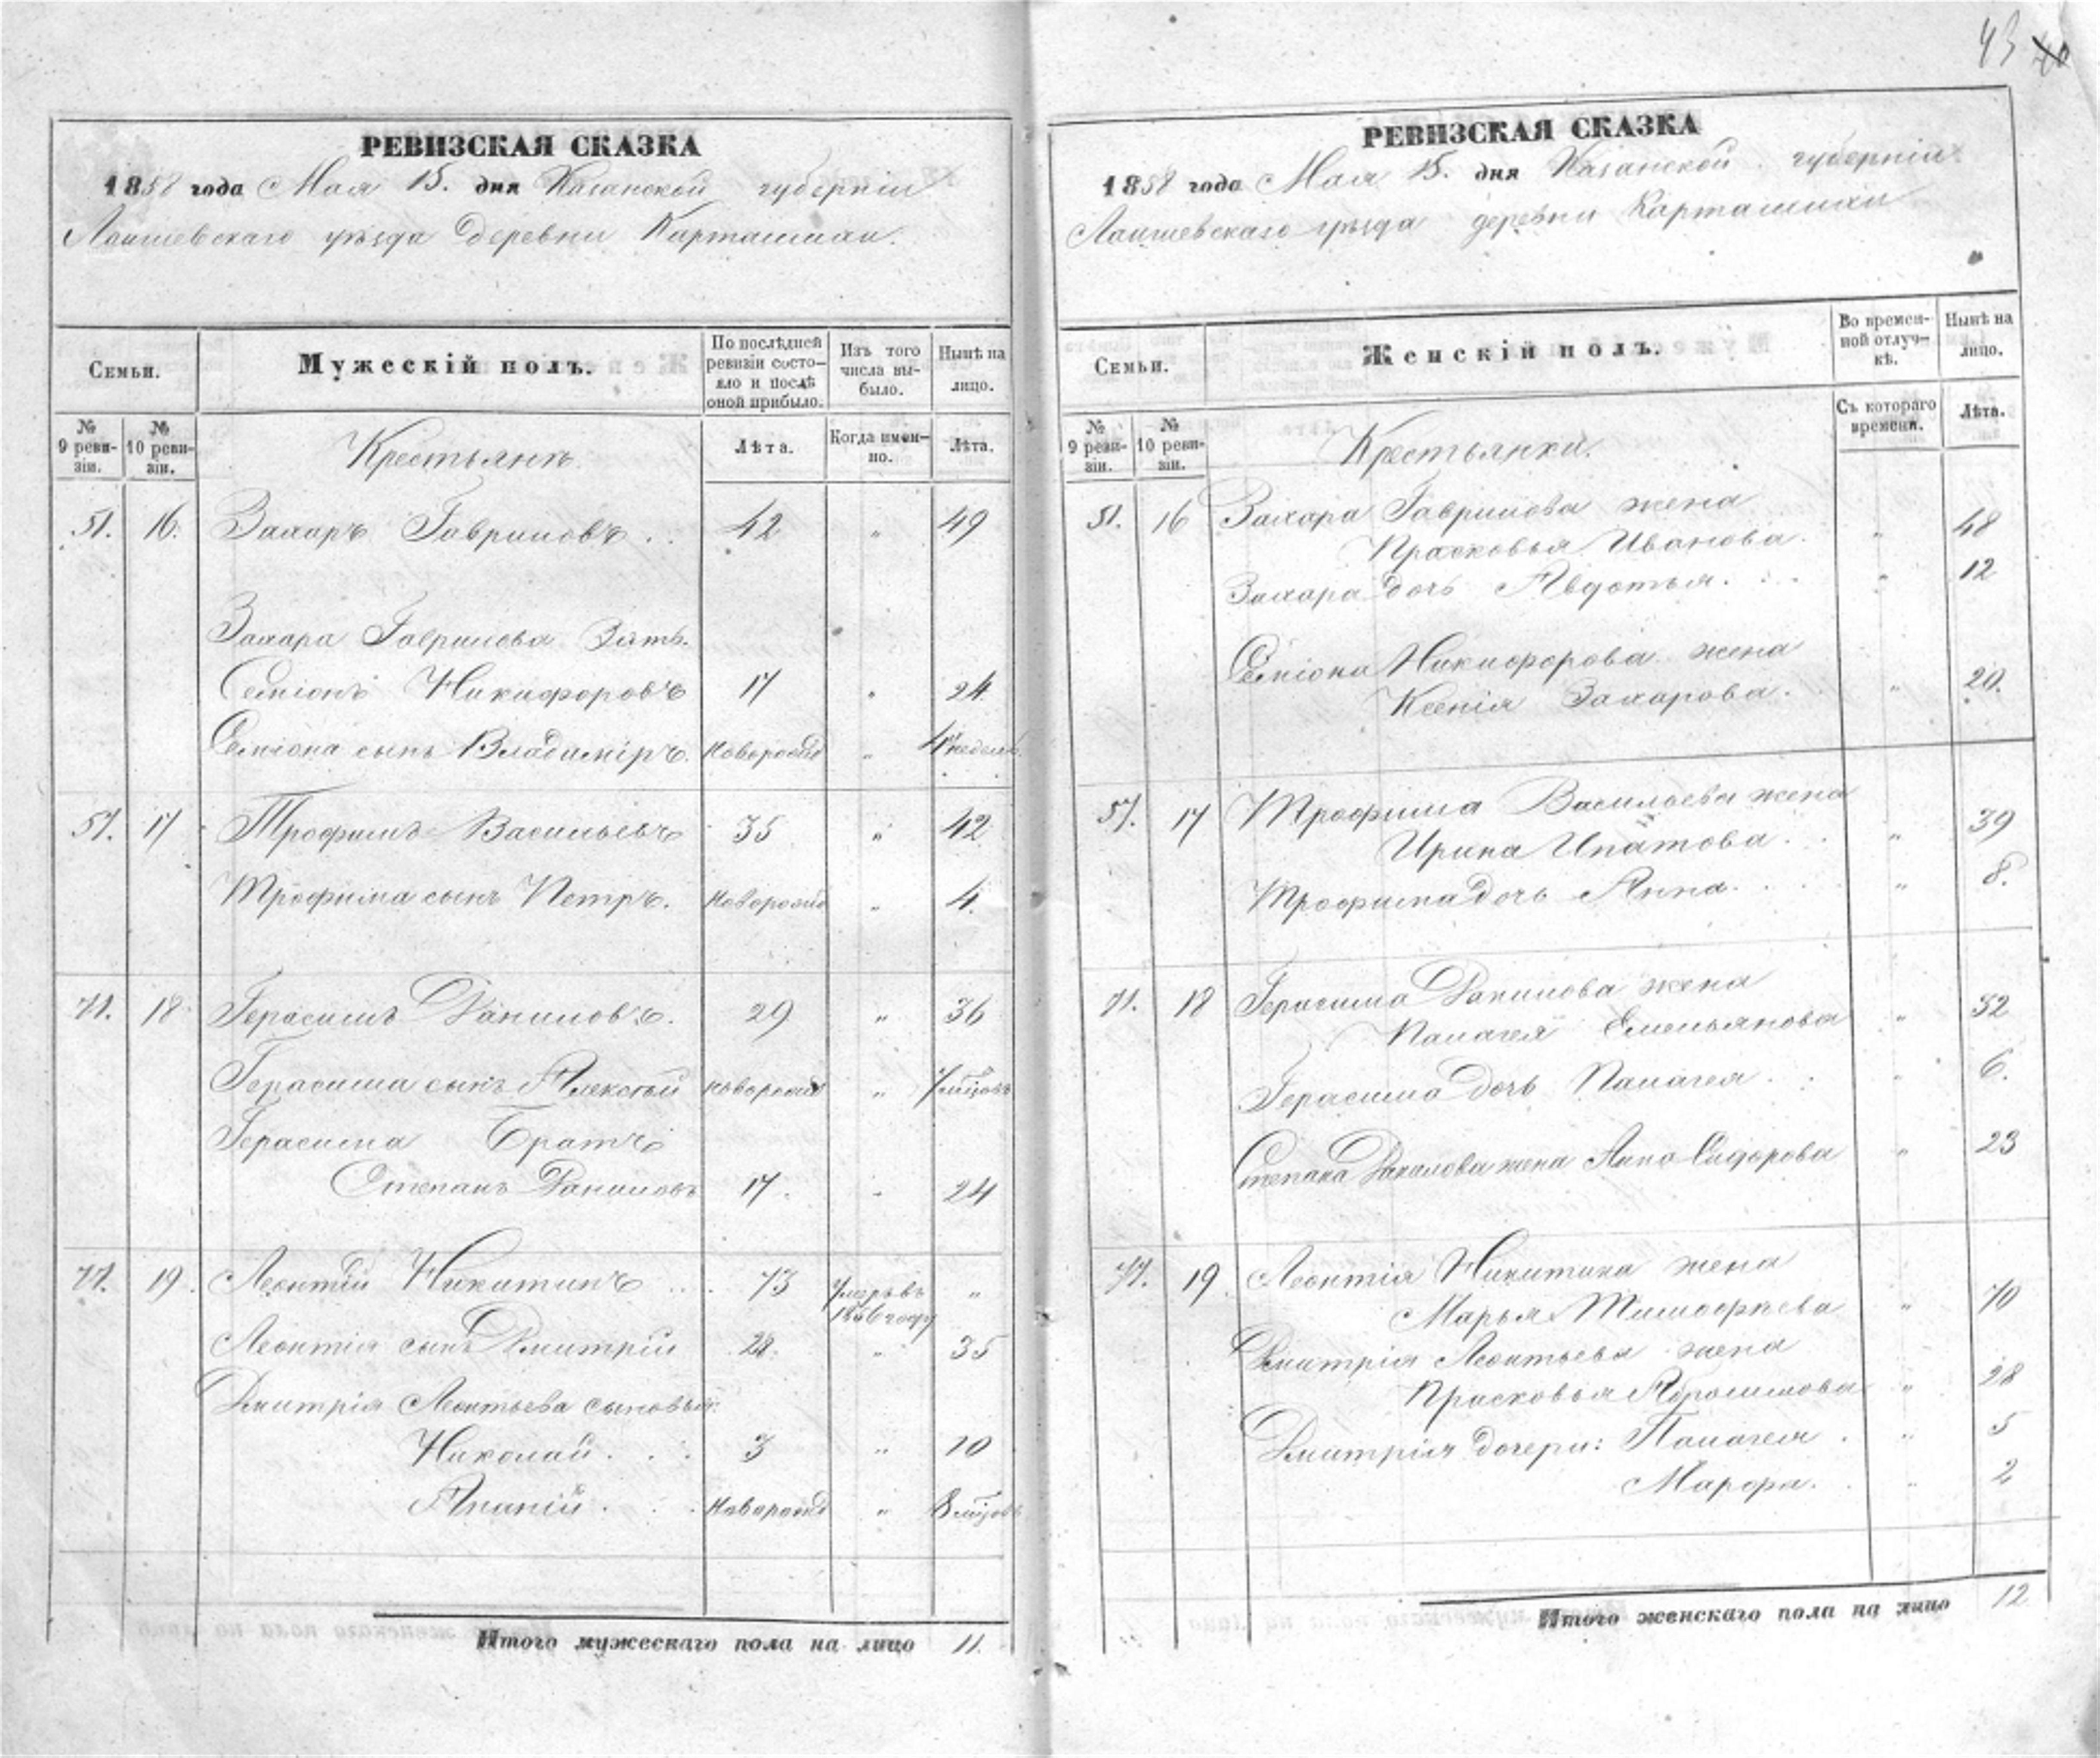 43 40
РЕВИЗСКАЯ СКАЗКА
1858 года Мая 15. дня Казанской губерніи
Лаишевскаго уѣзда деревни Карташихи.
Семьи.
Мужескій полъ.
По послѣдней ревизіи состояло и послѣ оной прибыло.
Изъ того числа выбыло.
Нынѣ на лицо.
№ 9 ревизіи.
№ 10 ревизіи.
Крестьянъ
Лѣта.
Когда именно.
Лѣта.
51. 16. Захаръ Гавриловъ . . 42 " 49
Захара Гаврилова Зять.
Семіонъ Никифоровъ 17 " 24
Семіона сынъ Владиміръ. новорожд " 4 недель
57. 17 Трофимъ Васильевъ 35 " 42
Трофима сынъ Петръ. новорожд " 4.
71. 18 Герасимъ Даниловъ. 29 " 36
Герасима сынъ Алексѣй новорожд " 7 мѣсцовъ
Герасима Братъ
Степанъ Даниловъ 17. " 24
77. 19. Леонтій Никитинъ . . . 73 Умеръ въ 1856 году "
Леонтія сынъ Дмитрій 28. " 35
Дмитрія Леонтьева сыновья:
Николай . . . 3 " 10
Ананій . . . Новорожд " 8 мѣсцовъ
Итого мужескаго пола на лицо 11.
РЕВИЗСКАЯ СКАЗКА
1858 года Мая 15. дня Казанской губерніи
Лаишевскаго уѣзда деревни Карташихи
Семьи.
Женскій полъ.
Во временной отлучкѣ.
Нынѣ на лицо.
№ 9 ревизіи.
№ 10 ревизіи.
Крестьянки.
Съ котораго времени.
Лѣта.
51. 16 Захара Гаврилова жена
Прасковья Иванова. " 48
Захара дочь Авдотья. . . " 12
Семіона Никифорова жена
Ксенія Захарова. " 20.
57. 17 Трофима Васильева жена
Ирина Ипатова. . . " 39
Трофима дочь Анна. . . . " 8.
71. 18 Герасима Данилова жена
Палагея Емельянова " 32
Герасима дочь Палагея . . " 6.
Степана Данилова жена Анна Сидорова " 23
77. 19. Леонтія Никитина жена
Марья Тимофѣева " 70
Дмитрія Леонтьева жена
Прасковья Абросимова " 28
Дмитрія дочери: Палагея . " 5
Марфа. . " 2
Итого женскаго пола на лицо 12